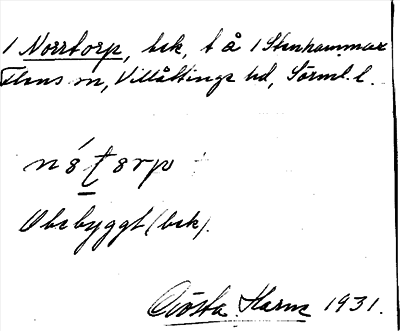 1 Norrtorp, bsk, t å 1 Stenhammar
Flens sn, Villåttinge hd, Sörml. l.
Obebyggt (bsk).
Gösta Harns 1931.